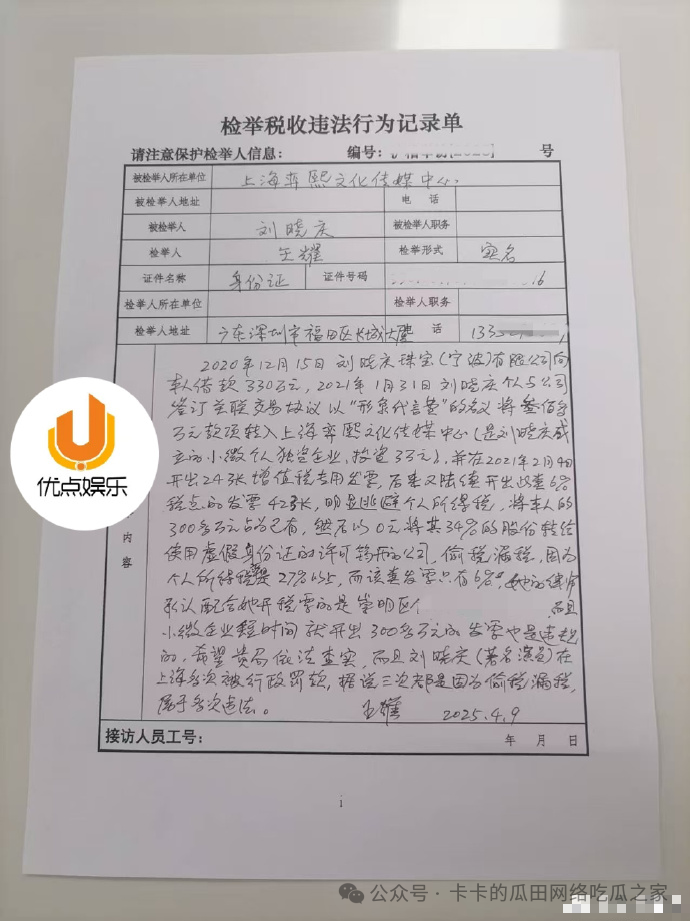 检举税收违法行为记录单
请注意保护检举人信息： 编号： 号
被检举人所在单位 上海弈熙文化传媒中心
被检举人地址 电 话
被检举人 刘晓庆 被检举人职务
检举人 王耀 检举形式 实名
证件名称 身份证 证件号码 16
检举人所在单位 检举人职务
检举人地址 广东深圳市福田区长城大厦 话 133
2020年12月15日刘晓庆珠宝(宁波)有限公司向
本人借款330万元，2021年1月31日刘晓庆个人与公司
签订关联交易协议以“形象代言费”的名义将叁佰多
万元款项转入上海弈熙文化传媒中心(是刘晓庆成
立的小微个人独资企业，投资3万元)，并在2021年2月4日
开出24张增值税专用发票，后来又陆续开出此类6%
税点的发票42张，明显逃避个人所得税，将本人的
300多万元占为己有，然后以0元将其34%的股份转给
使用虚假身份证的许可钧开的公司，偷税漏税，因为
个人所得税是27%以上，而该类发票只有6%，她的律师
承认配合她开税票的是崇明区 而且
小微企业短时间就开出300多万元的发票也是违规
的，希望贵局依法查实，而且刘晓庆(著名演员)在
上海多次被行政罚款，据说三次都是因为偷税漏税，
属于多次违法。 王耀 2025.4.9
内容
接访人员工号： 年 月 日
1
优点娱乐
公众号·卡卡的瓜田网络吃瓜之家